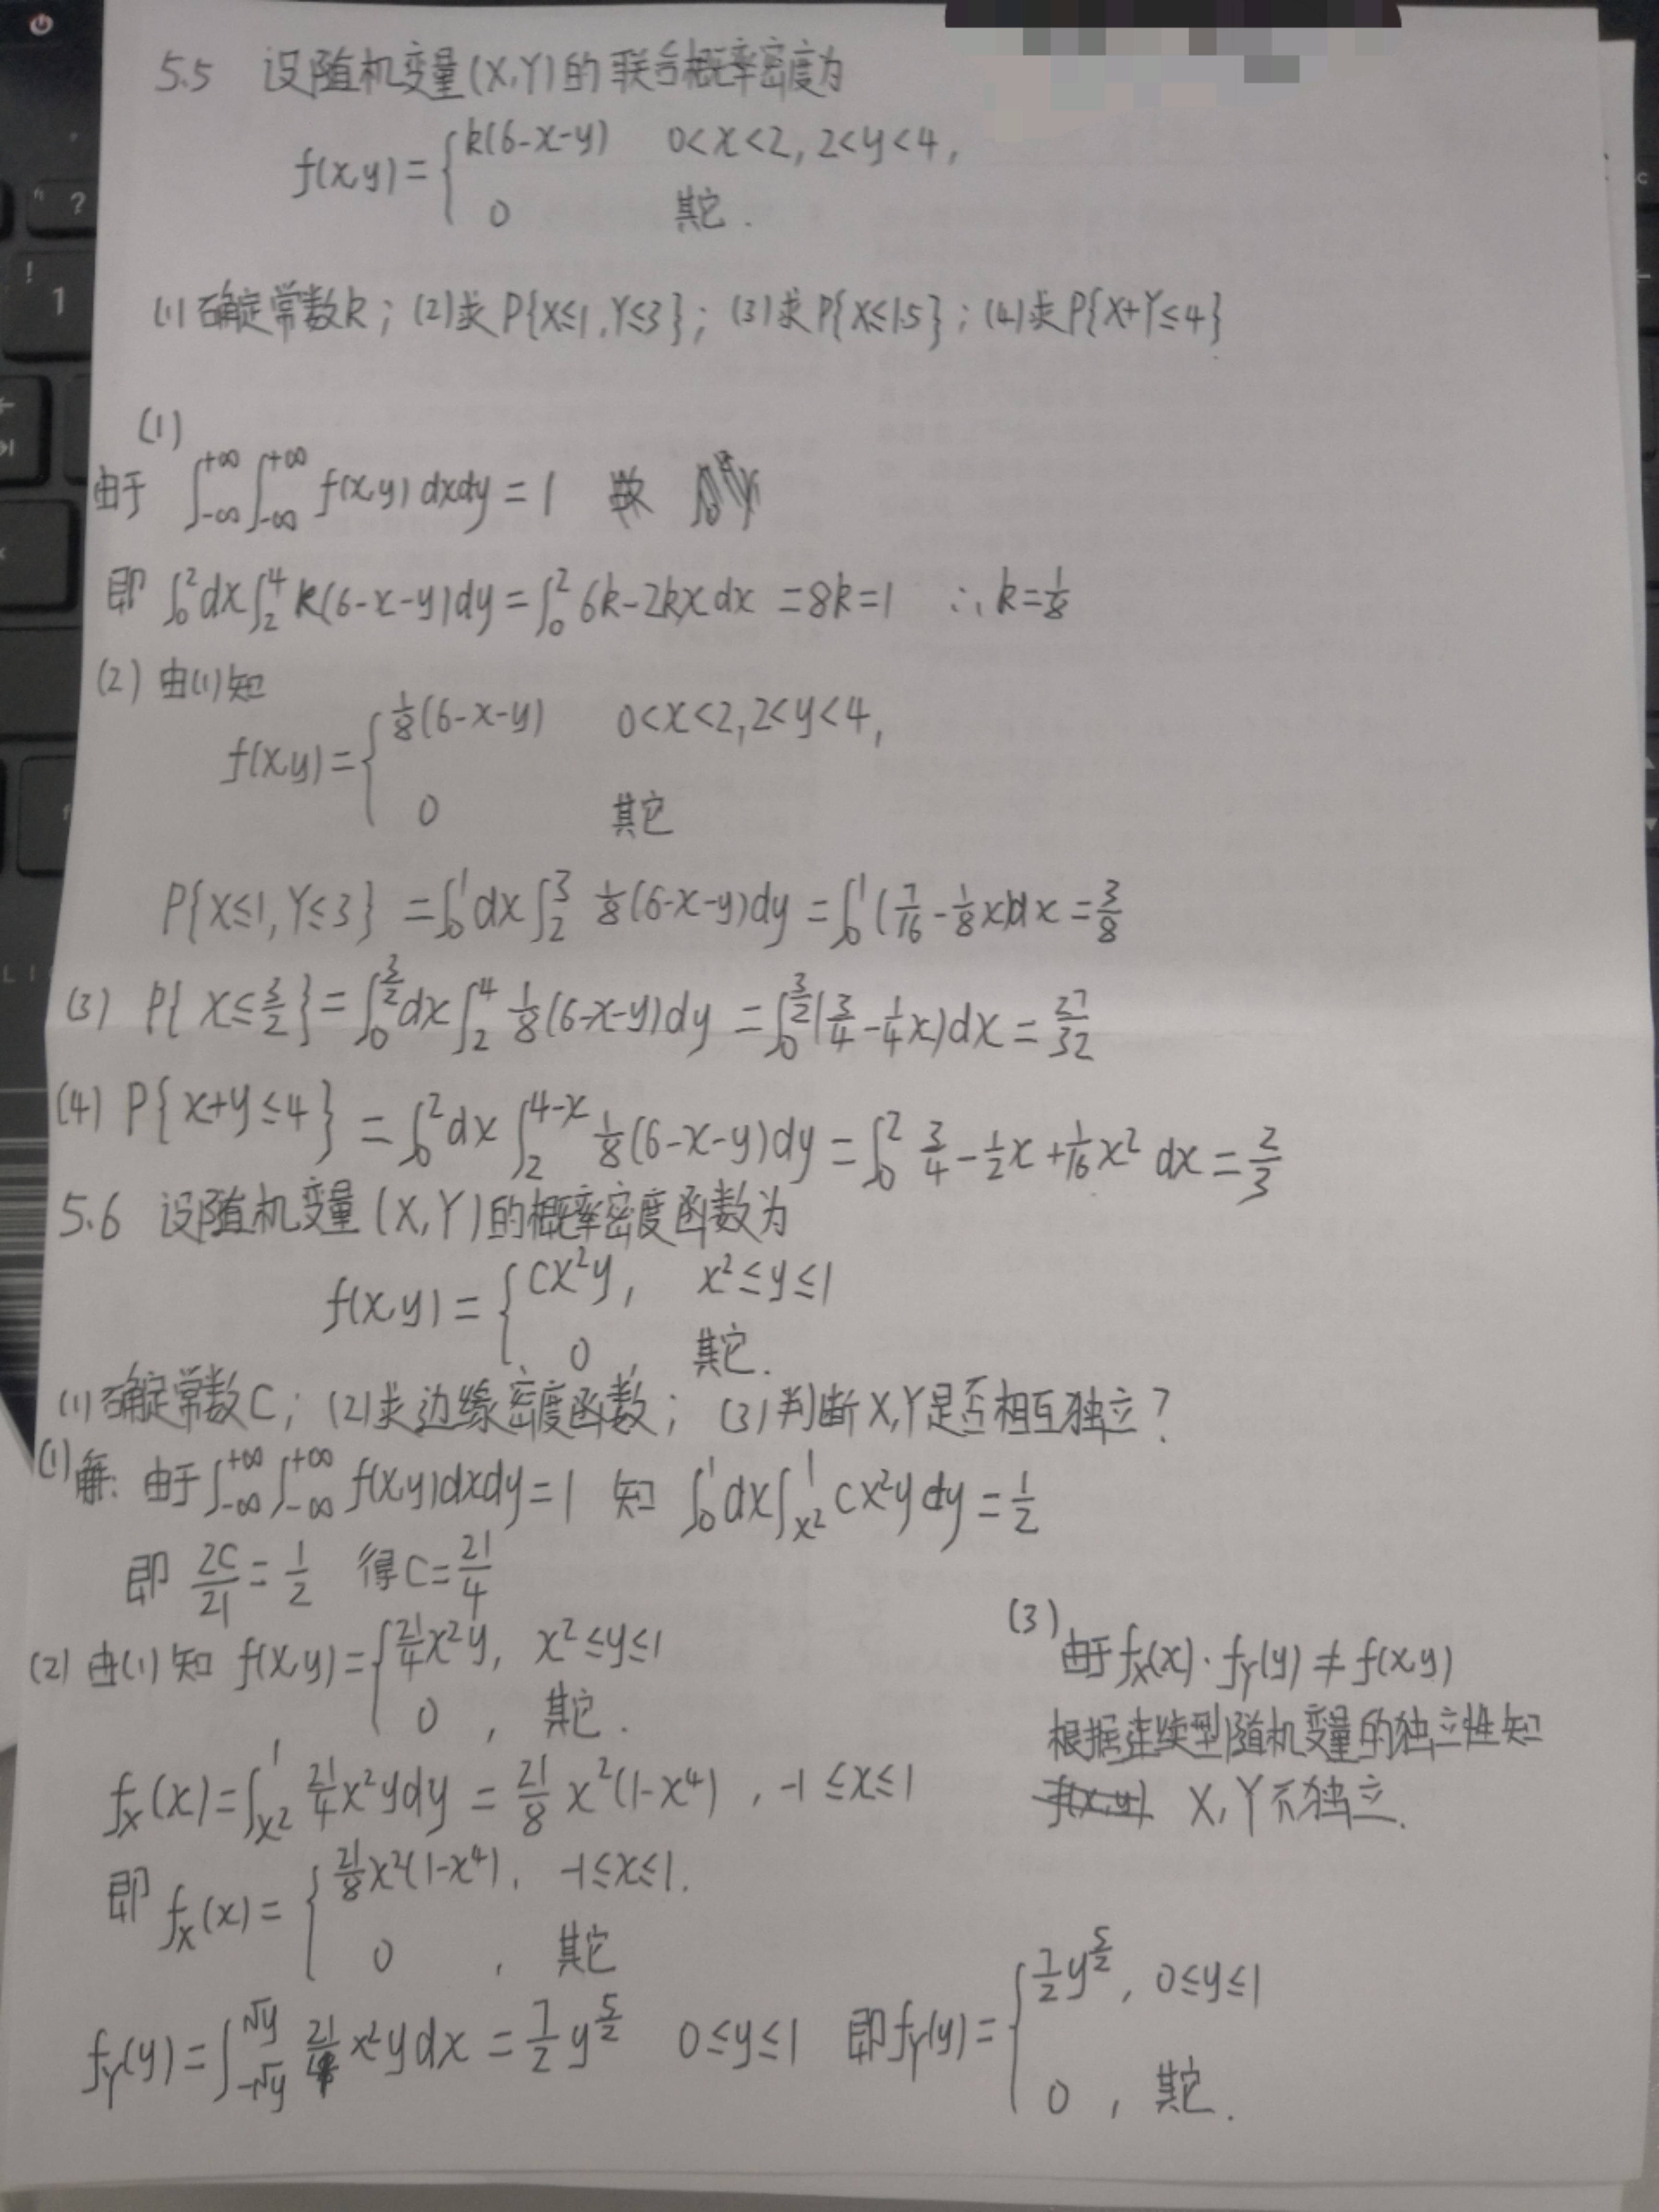 5.5 设随机变量(X,Y)的联合概率密度为
f(x,y)={k(6-x-y) 0<x<2, 2<y<4,
0 其它.
(1)确定常数k; (2)求P{X≤1,Y≤3}; (3)求P{X≤1.5}; (4)求P{X+Y≤4}
(1)
由于 ∫_{-∞}^{+∞}∫_{-∞}^{+∞} f(x,y)dxdy=1
即 ∫_0^2 dx∫_2^4 k(6-x-y)dy=∫_0^2 6k-2kx dx =8k=1 ∴k=1/8
(2) 由(1)知
f(x,y)={1/8(6-x-y) 0<x<2,2<y<4,
0 其它
P{X≤1,Y≤3} =∫_0^1 dx∫_2^3 1/8(6-x-y)dy=∫_0^1 (7/16-1/8x)dx=3/8
(3) P{X≤3/2}=∫_0^{3/2}dx∫_2^4 1/8(6-x-y)dy =∫_0^{3/2}(3/4-1/4x)dx=27/32
(4) P{x+y≤4} =∫_0^2 dx ∫_2^{4-x} 1/8(6-x-y)dy=∫_0^2 3/4-1/2x+1/16x² dx=2/3
5.6 设随机变量(X,Y)的概率密度函数为
f(x,y)={Cx²y, x²≤y≤1
0 其它.
(1)确定常数C; (2)求边缘密度函数; (3)判断X,Y是否相互独立?
(1)解: 由于∫_{-∞}^{+∞}∫_{-∞}^{+∞} f(x,y)dxdy=1 知 ∫_0^1 dx∫_{x²}^1 Cx²y dy=1/2
即 2C/21=1/2 得C=21/4
(2) 由(1)知 f(x,y)={21/4x²y, x²≤y≤1
0, 其它.
f_X(x)=∫_{x²}^1 21/4x²ydy=21/8 x²(1-x⁴), -1≤x≤1
即 f_X(x)={21/8x²(1-x⁴), -1≤x≤1.
0, 其它
f_Y(y)=∫_{-√y}^{√y} 21/4x²ydx=7/2y^{5/2} 0≤y≤1 即f_Y(y)={7/2y^{5/2}, 0≤y≤1
0, 其它.
(3)
由于f_X(x)·f_Y(y)≠f(x,y)
根据连续型随机变量的独立性知
f(x,y) X,Y不独立.